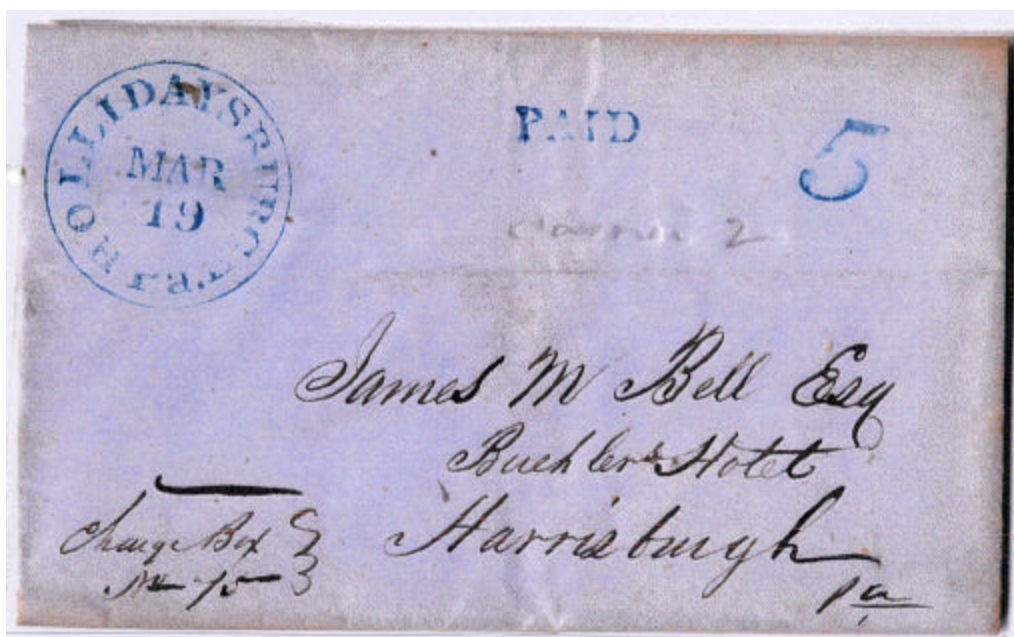 HOLLIDAYSBURGH Pa.
MAR
19
PAID
5
2
James M Bell Esq
Buehlers Hotel
Harrisburgh
pa
Charge Box
No 15